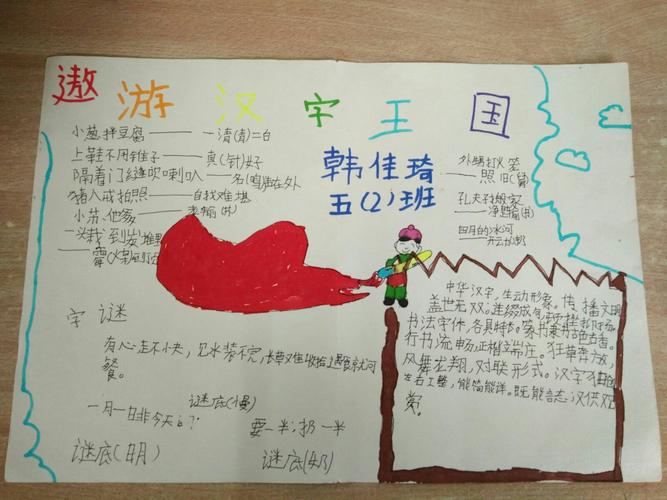 遨游汉字王国
小葱拌豆腐——一清(青)二白
上鞋不用锥子——真(针)好
隔着门缝吹喇叭——名(鸣)声在外
猪八戒拍照——自找难堪
韩佳琦
五(2)班
外甥打灯笼
——照旧(舅)
孔夫子搬家
——净是输(书)
四月的冰河
字谜
有心走不快，见水装不完，
餐。
谜底(慢)
一月一日非今天
谜底(明)
要一半，扔一半
谜底(奶)
中华汉字，生动形象，传播文明
盖世无双。连缀成句，
书法字体，各具特色。
行书流畅，正楷端庄。狂草奔放，
风舞龙翔，对联形式。汉字独
左右工整，能简能详。既能言志，又供欢
赏。